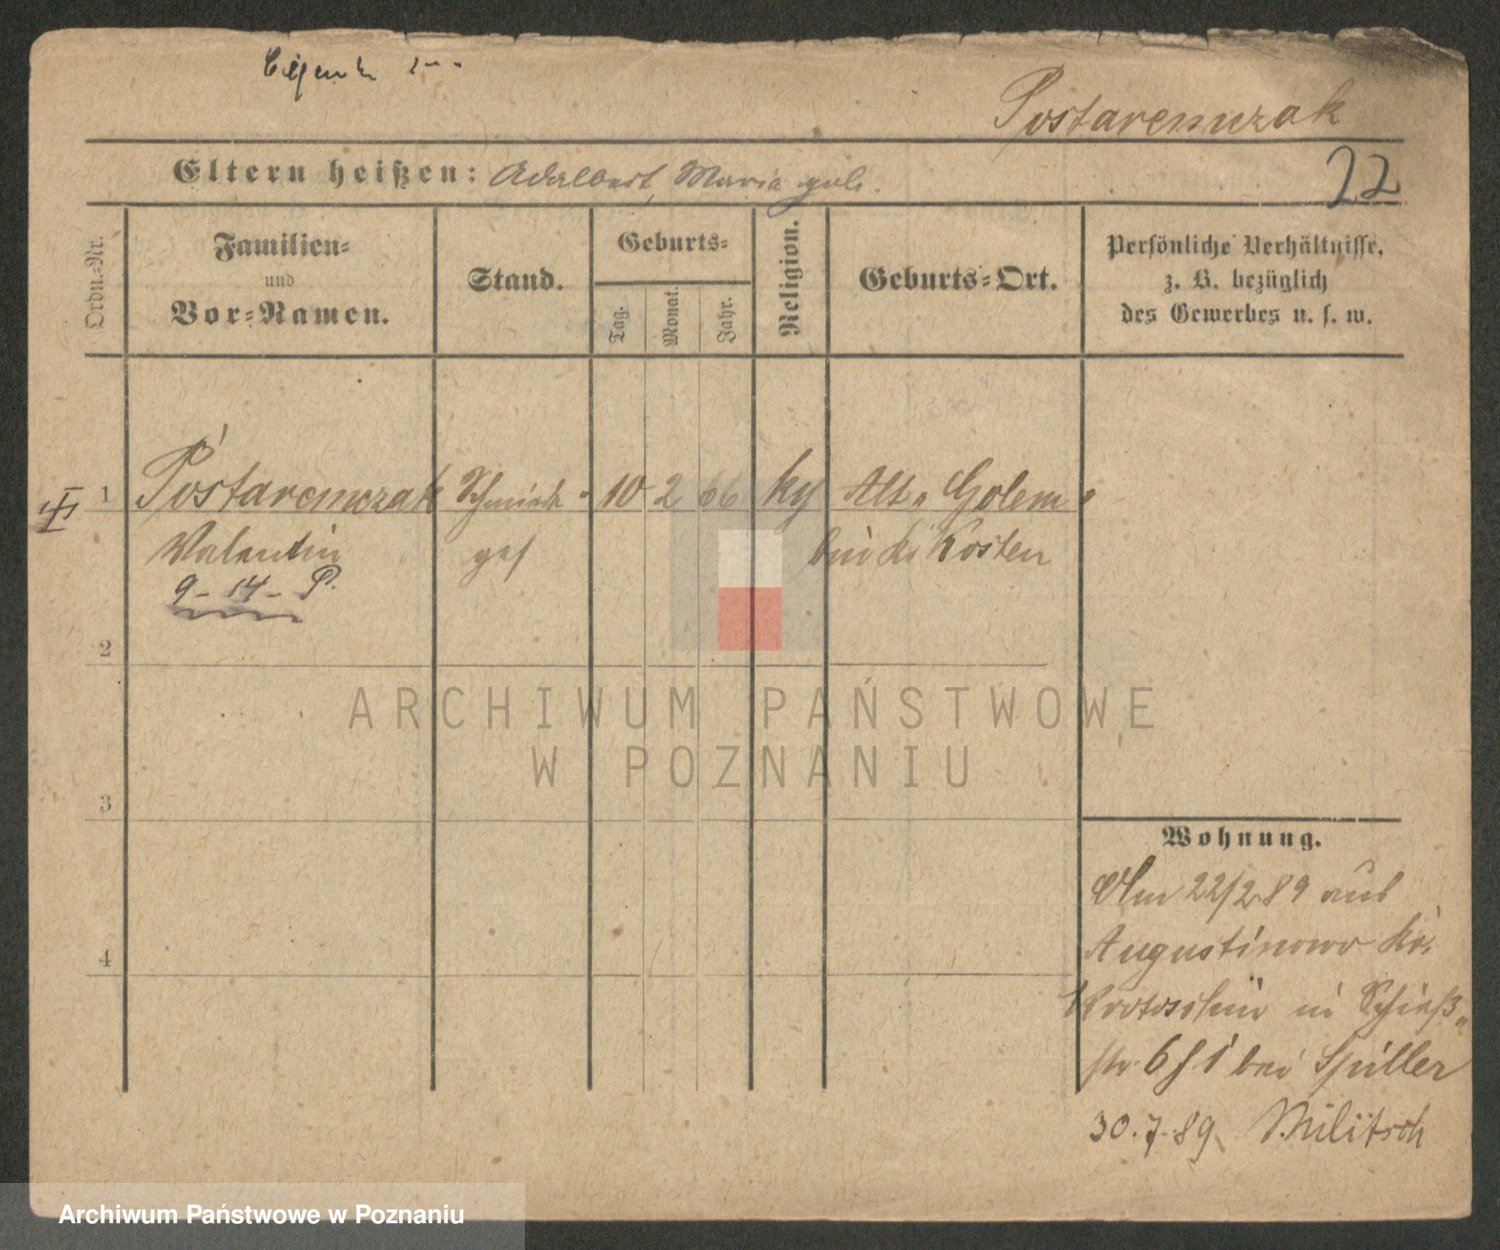 Postaremczak
Eltern heißen: Adalbert, Maria geb.
22
Ordn.-Nr.
Familien-
und
Vor-Namen.
Stand.
Geburts-
Tag.
Monat.
Jahr.
Religion.
Geburts-Ort.
Persönliche Verhältnisse,
z. B. bezüglich
des Gewerbes u. s. w.
1 Postaremczak Schmiede- 10 2 66 kg Alt-Golem
Valentin ges bei Kr Kosten
9-14- P.
2
3
4
ARCHIWUM PAŃSTWOWE
W POZNANIU
Wohnung.
Am 22/2 89 aus
Augustinowo Kr.
Krotoschin in Schieß-
str. 6 bei Spiller
30.7.89 Militsch
Archiwum Państwowe w Poznaniu